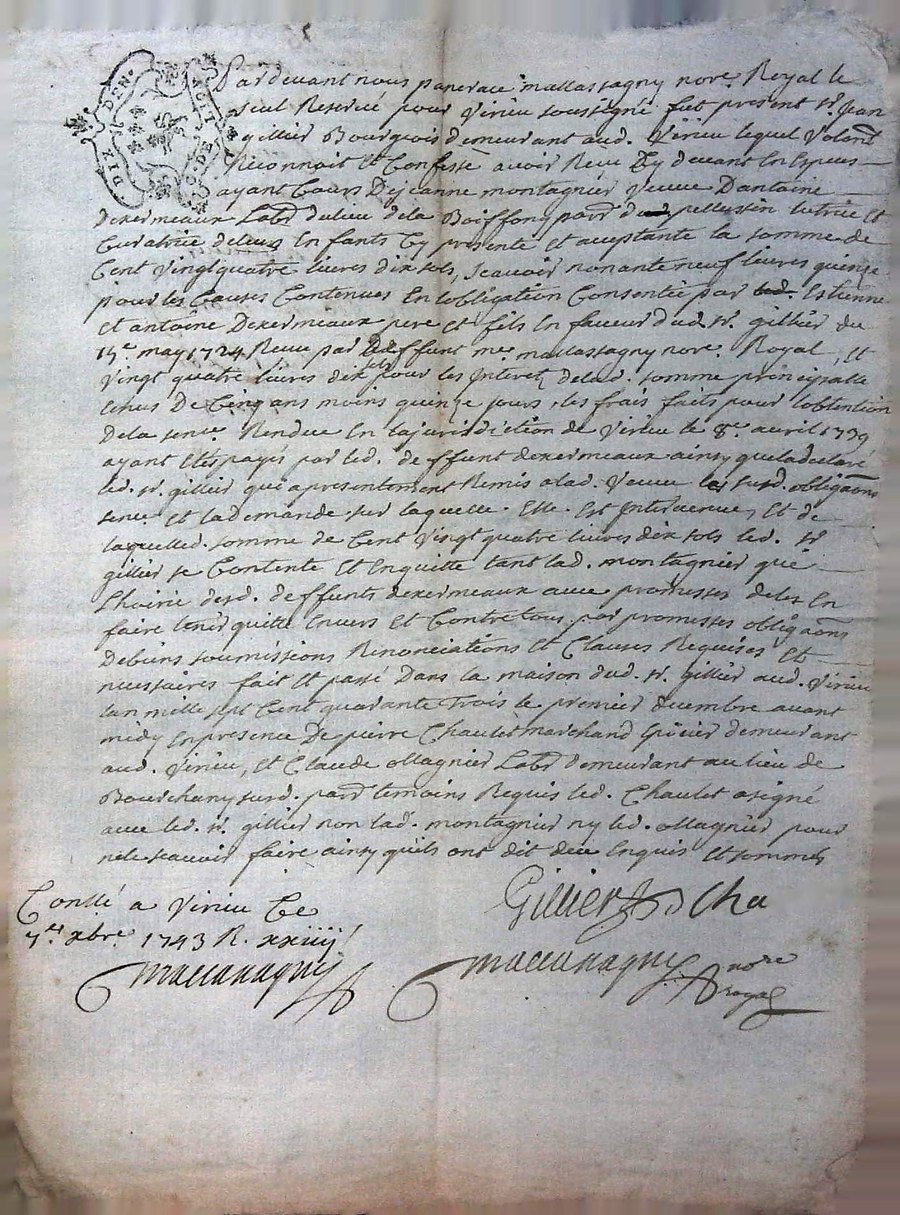 DIX DEN. G. DE LIT
Pardevant nous pancrace mallassagny nore. Royal le
seul Reservé pour Virieu soussigné fut present sr. Jean
gillier Bourgeois demeurant aud. Virieu lequel Volont
Reconnoit Et Confesse avoir Reçu Cy devant En Especes
ayant Cours De jeanne montagnier Veuve Dantoine
Dexermeaux Labr. du lieu de la Boiffony parr. de pellussin tutrice Et
Curatrice de leurs Enfants Cy presente Et acceptante la somme de
Cent Vingt quatre livres dix sols, scavoir nonante neuf livres quinze
pour les Causes Contenues En lobligation Consentie par Estienne
Et antoine Dexermeaux pere et fils En faveur dud. sr. gillier du
15e. may 1724 Reçue par deffunt me. mallassagny nore. Royal, Et
Vingt quatre livres dix sols pour les Interets delad. somme principalle
Echus De Cinq ans moins quinze jours, les frais faits pour lobtention
De la sence. Rendue En la jurisdiction de Virieu le 8e. avril 1739
ayant Etés payés par led. deffunt dexermeaux ainsy que la declaré
led. sr. gillier qui a presentement Remis a lad. Veuve les susd. obligaons
sence. Et la demande sur laquelle Elle Est Intervenue, Et de
laquelled. somme de Cent Vingt quatre livres dix sols led. sr.
gillier se Contente Et En quitte tant lad. montagnier que
Lhoirie desd. deffunts dexermeaux avec promesses de les En
faire tenir quitte Envers Et Contre tous, par promesses obligaons
De biens soumissions Renonciations Et Clauses Requises Et
necessaires fait Et passé Dans la maison dud. sr. gillier aud. Virieu
lan mille sept Cent quarante Trois le premier decembre avant
midy En presence De pierre Chaulet marchand demeurant
aud. Virieu, Et Claude ollagnier Labr. demeurant au lieu de
Bourchany susd. parr. temoins Requis led. Chaulet a signé
avec led. sr. gillier non lad. montagnier ny led. ollagnier pour
ne le scavoir faire ainsy quils ont dit deu Enquis Et sommés
Gillier Cha
Conllé a Virieu Ce
7e. xbre. 1743 R. xxiiij s
Maccanagny
Maccanagny nore
royal